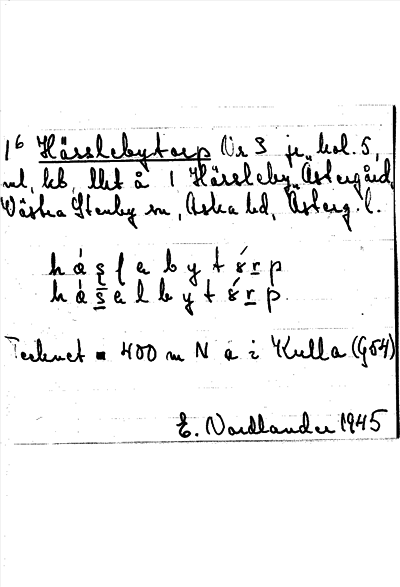 1⁶ Hässlebytorp Nr 3 je kol. 5,
ml, kb, lht å 1 Hässleby Östergård,
Västra Stenby sn, Aska hd, Österg. l.
h á s l a b y t ó r p
h á s a l b y t ó r p
Tecknet ▪ 400 m N a i Kulla (G54)
E. Nordlander 1945